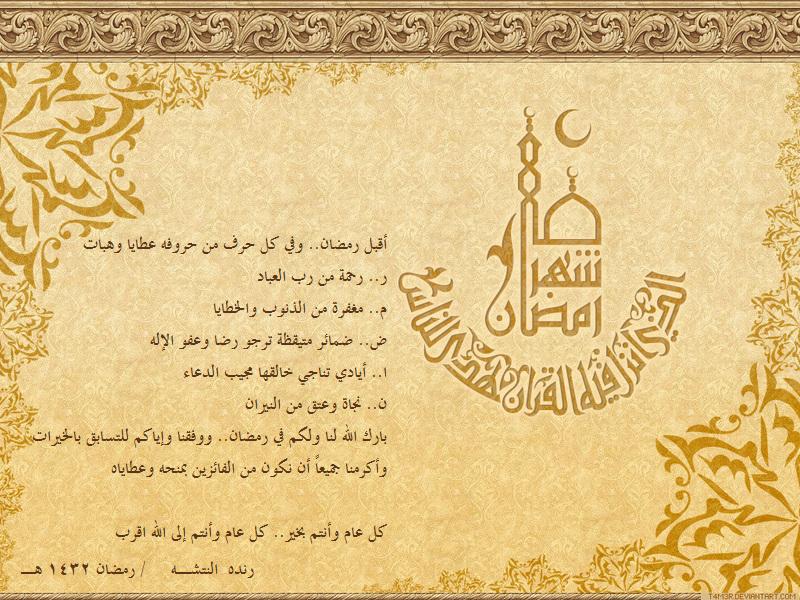 شهر
رمضان
الذي أنزل فيه القرآن هدى للناس
أقبل رمضان.. وفي كل حرف من حروفه عطايا وهبات
ر.. رحمة من رب العباد
م.. مغفرة من الذنوب والخطايا
ض.. ضمائر متيقظة ترجو رضا وعفو الإله
ا.. أيادي تناجي خالقها مجيب الدعاء
ن.. نجاة وعتق من النيران
بارك الله لنا ولكم في رمضان.. ووفقنا وإياكم للتسابق بالخيرات
وأكرمنا جميعاً أن نكون من الفائزين بمنحه وعطاياه
كل عام وأنتم بخير.. كل عام وأنتم إلى الله اقرب
رنده النتشـــه / رمضان ١٤٣٢ هـــ
T4M3R.DEVIANTART.COM